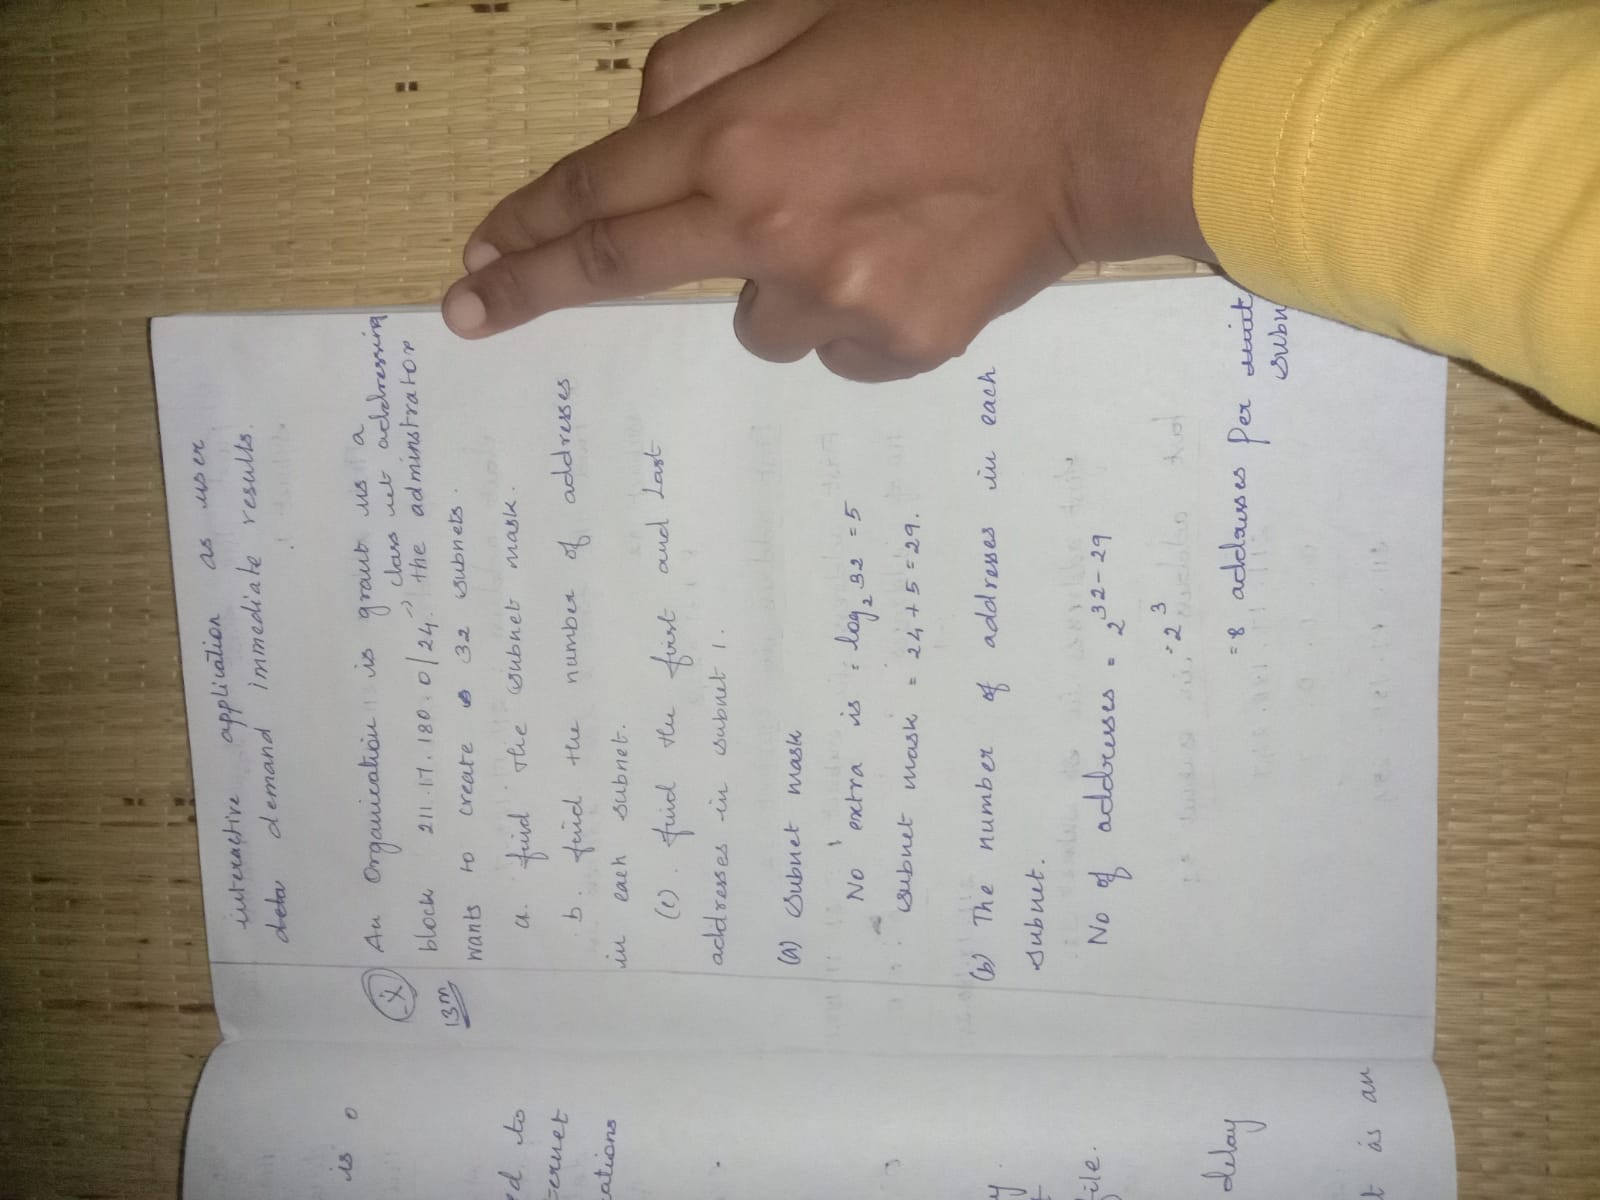 is
ed to
ternet
cations
file.
delay
t as an
interactive application as user
deta demand immediate results.
13m
An Organication is grant us a
class net addressing
block 211.17.180.0/24. the adminstrator
wants to create 32 subnets.
a. find the subnet mask.
b. find the number of addresses
in each subnet.
(c). find the first and Last
addresses in subnet 1.
(a) subnet mask
No extra is = log2 32 = 5
subnet mask = 24 + 5 = 29.
(b) The number of addresses in each
subnet.
No of addresses = 2^32-29
= 2^3
= 8 addresses Per unit
subn